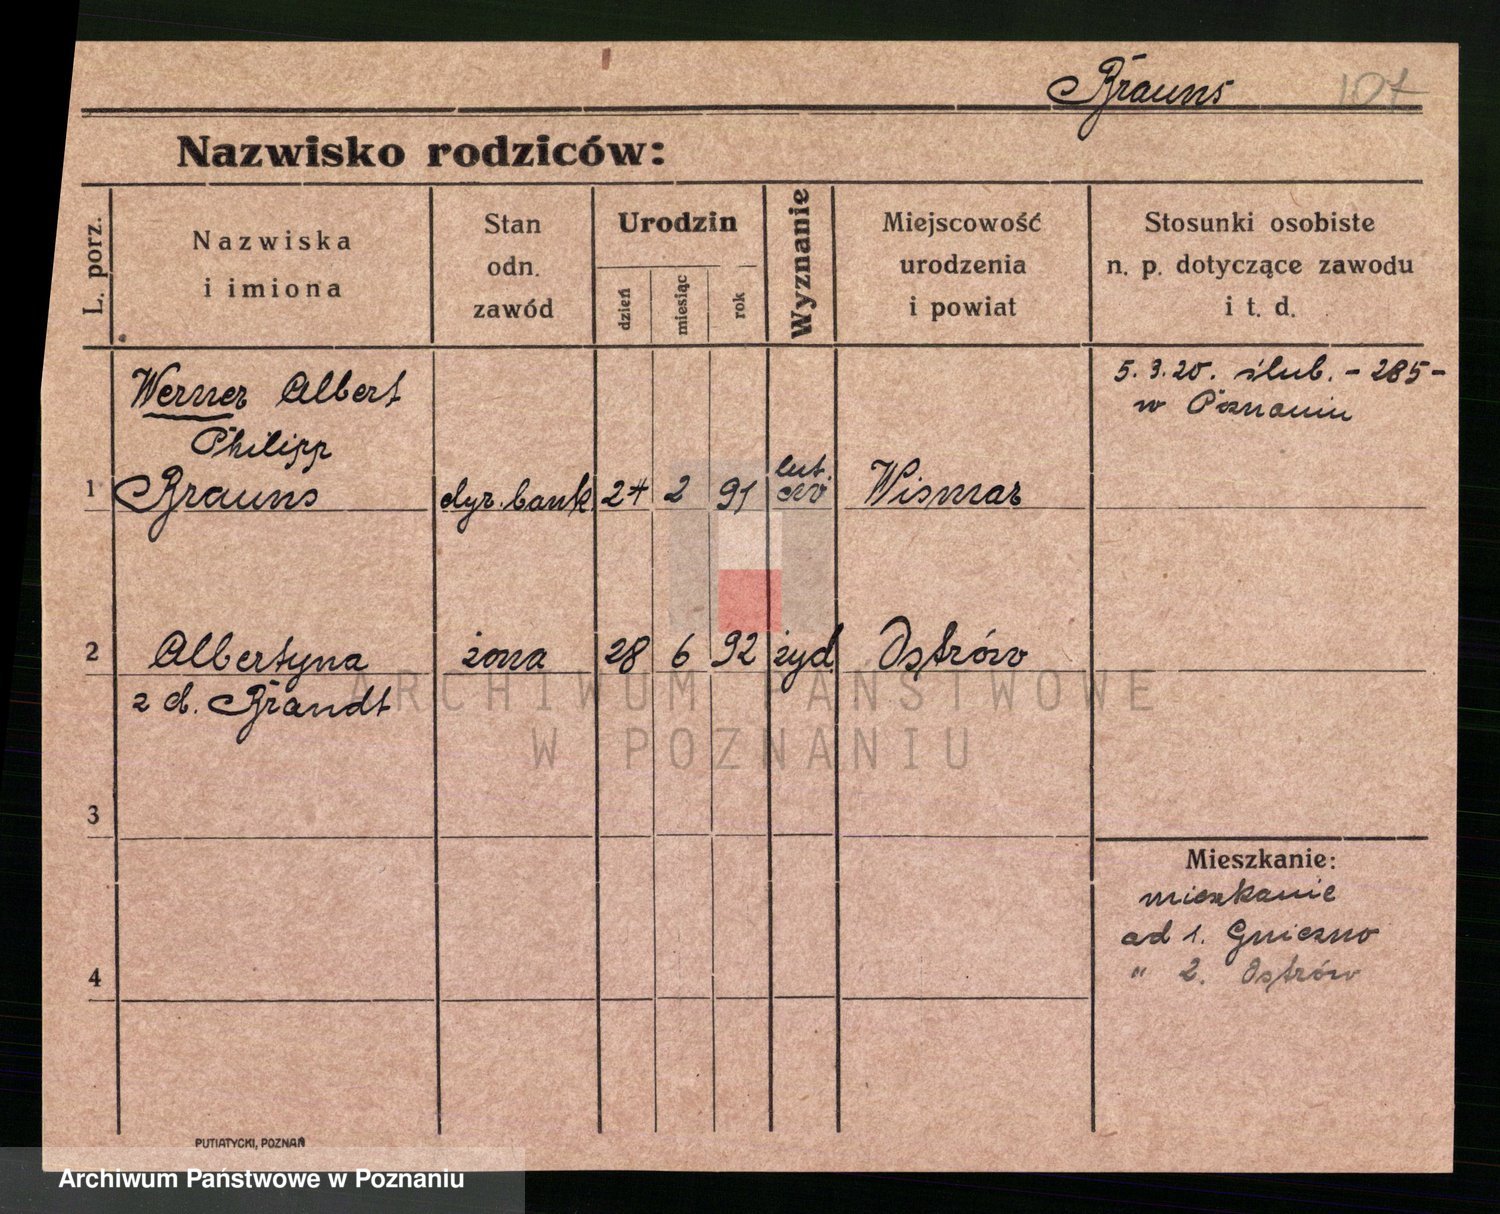 Brauns 107
Nazwisko rodziców:
L. porz.
Nazwiska
i imiona
Stan
odn.
zawód
Urodzin
dzień
miesiąc
rok
Wyznanie
Miejscowość
urodzenia
i powiat
Stosunki osobiste
n. p. dotyczące zawodu
i t. d.
Werner Albert
Philipp
1 Brauns dyr. bank. 24 2 91 lut. Wismar
5. 3. 20. ślub. - 285 -
w Poznaniu
2 Albertyna żona 28 6 92 żyd Ostrów
z d. Brandt
3
4
Mieszkanie:
mieszkanie
ad 1. Gniezno
" 2. Ostrów
ARCHIWUM PAŃSTWOWE
W POZNANIU
PUTIATYCKI, POZNAŃ
Archiwum Państwowe w Poznaniu